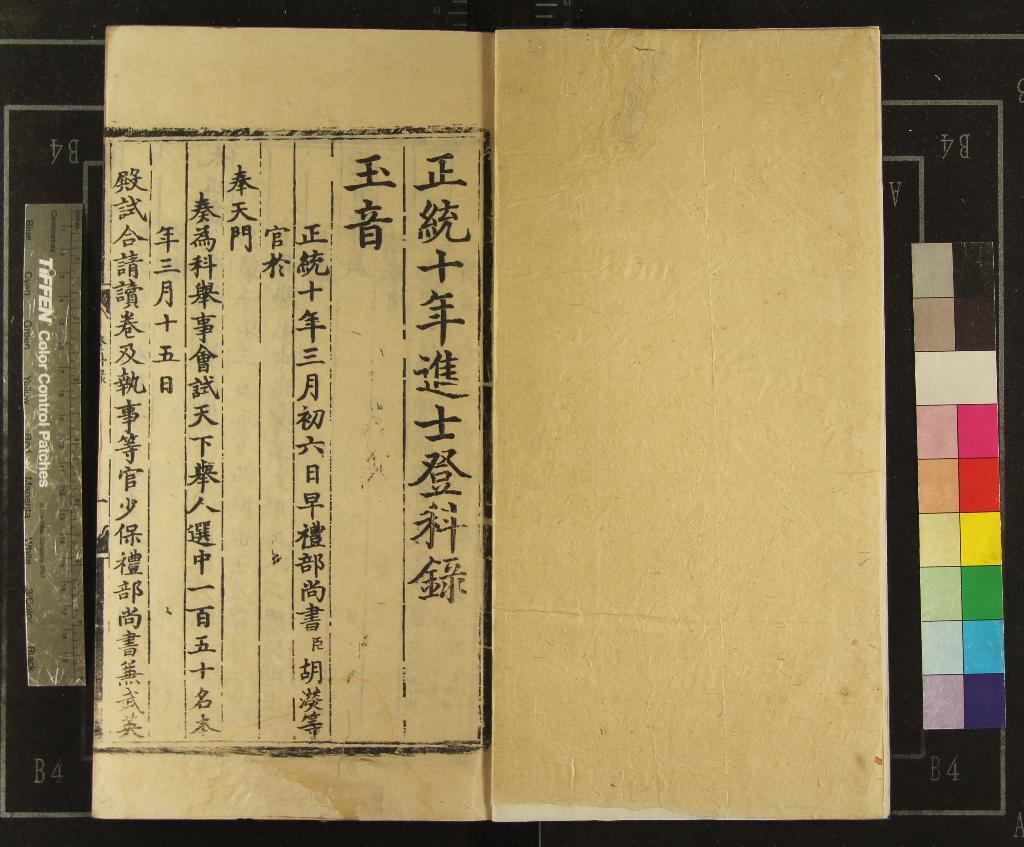 正統十年進士登科錄
玉音
正統十年三月初六日早禮部尚書臣胡濙等
官於
奉天門
奏為科舉事會試天下舉人選中一百五十名本
年三月十五日
殿試合請讀卷及執事等官少保禮部尚書兼武英
TIFFEN Color Control Patches
Blue
Cyan
Green
Yellow
Red
Magenta
White
3/Color
Black
B4
B4
B4
B4
A
A